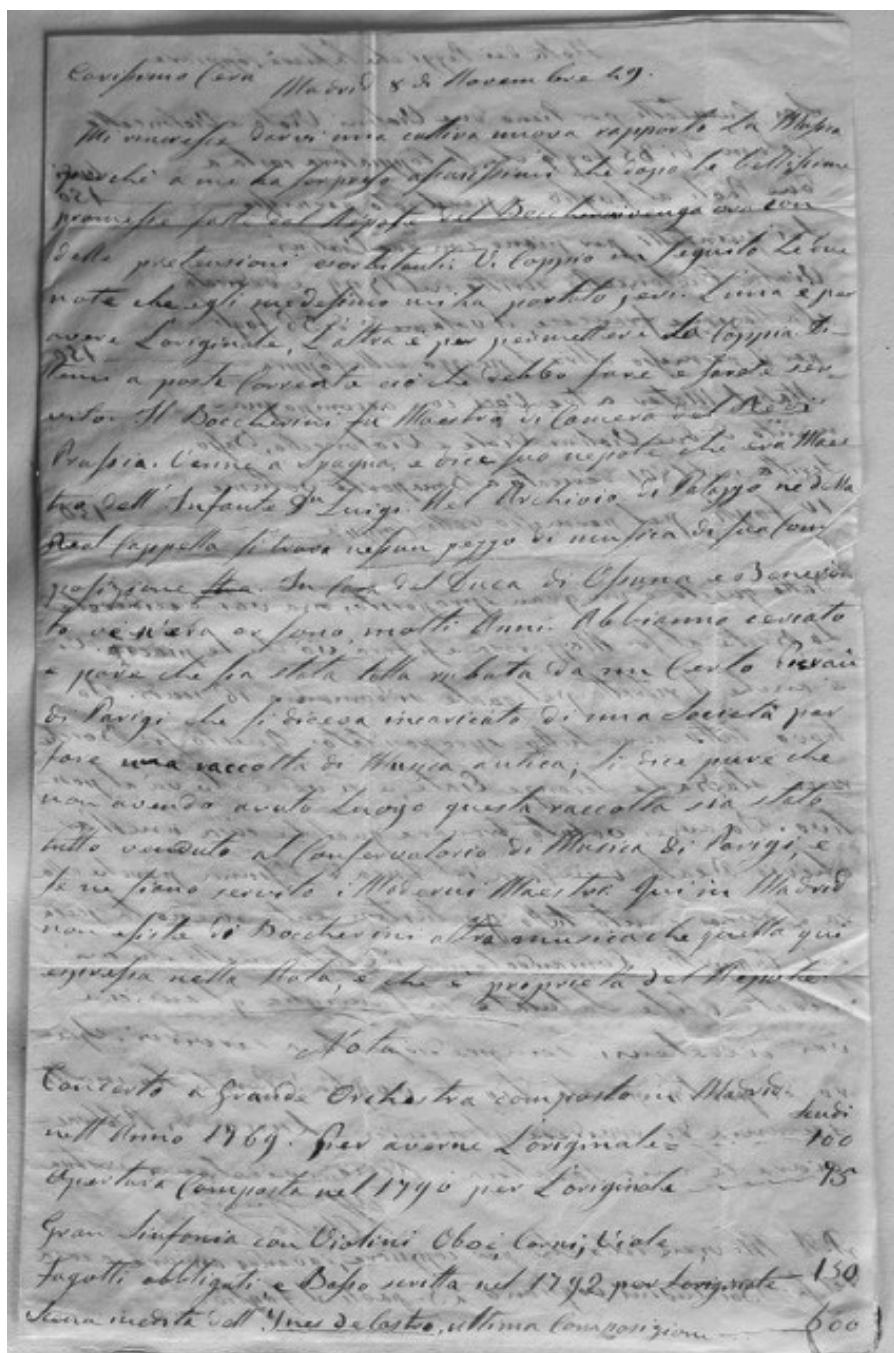 Carissimo Cera
Madrid 8 di Novembre 49.
Mi rincresce darvi una cattiva nuova rapporto La Musica
perchè a me ha sorpreso assaissimo che dopo le bellissime
promesse fatte dal Nipote del Boccherini venga ora con
delle pretensioni esorbitanti. Vi Coppio in seguito Le due
note che egli medesimo mi ha portato jeri. L'una è per
avere L'originale, L'altra è per permettere La Coppia. Di-
temi a posta Corrente ciò che debbo fare e sarete ser-
vito. Il Boccherini fu Maestro di Camera del Re di
Prussia. Venne a Spagna, e dice suo nepote che era Maes-
tro dell'Infante Dn Luigi. Nel Archivio di Palazzo ne della
Real Cappella si trova nessun pezzo di musica di sua Com-
posizione. In Casa del Duca di Ossuna e Benevен-
to, ve n'era or sono molti Anni. Abbiamo cercato
e pare che sia stata tutta rubata da un Certo
di Parigi che si diceva incaricato di una Società per
fare una raccolta di Musica antica; si dice pure che
non avendo avuto Luogo questa raccolta sia stato
tutto venduto al Conservatorio di Musica di Parigi, e
se ne siano serviti i Moderni Maestri. Qui in Madrid
non esiste di Boccherini altra musica che quella qui
espressa nella Nota, e che è proprietà del Nipote.
Nota
Concerto a Grande Orchestra composto in Madrid
Scudi
nell'Anno 1769. per averne L'originale = 100
Apertura Composta nel 1790 per L'originale 75
Gran Sinfonia con Violini Oboi, Corni, Viole
Fagotti obbligati e Basso scritta nel 1792 per L'originale 150
Scena inedita dell'Ynes de Castro, ultima Composizione 600